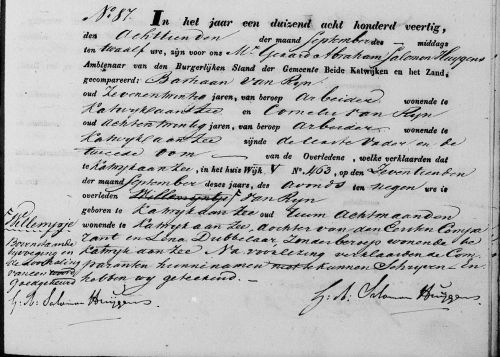 No. 87. In het jaar een duizend acht honderd veertig,
den Achttienden der maand September des middags
ten twaalf ure, zijn voor ons Mr. Gerard Abraham Salomon Huygens
Ambtenaar van den Burgerlijken Stand der Gemeente Beide Katwijken en het Zand,
gecompareerd: Bastiaan van Ryn
oud Zevenentwintig jaren, van beroep Arbeider wonende te
Katwyk aan Zee en Cornelis van Ryn
oud Achtentwintig jaren, van beroep Arbeider wonende te
Katwyk aan Zee zijnde de eerste Vader en de
tweede Oom van de Overledene, welke verklaarden dat
te Katwyk aan Zee, in het huis Wijk V No. 463, op den Zeventienden
der maand September dezes jaars, des Avonds ten negen ure is
overleden Willempje van Ryn
geboren te Katwyk aan Zee oud ruim Acht maanden
wonende te Katwyk aan Zee, dochter van den Eersten Compa
rant en Lena Dubbelaar, Zonder beroep wonende te
Katwyk aan Zee Na voorlezing verklaarden de Com
paranten hunne namen niet te kunnen Schryven En
hebben wy geteekend.
G. A. Salomon Huygens.
Willempje
Bovenstaande
byvoeging en
de doorhaling
van een woord
goedgekeurd
G. A. Salomon Huygens.